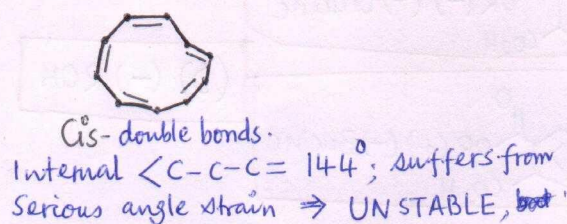 Cis-double bonds.
Internal <C-C-C= 144°; suffers from
Serious angle strain ⇒ UNSTABLE,